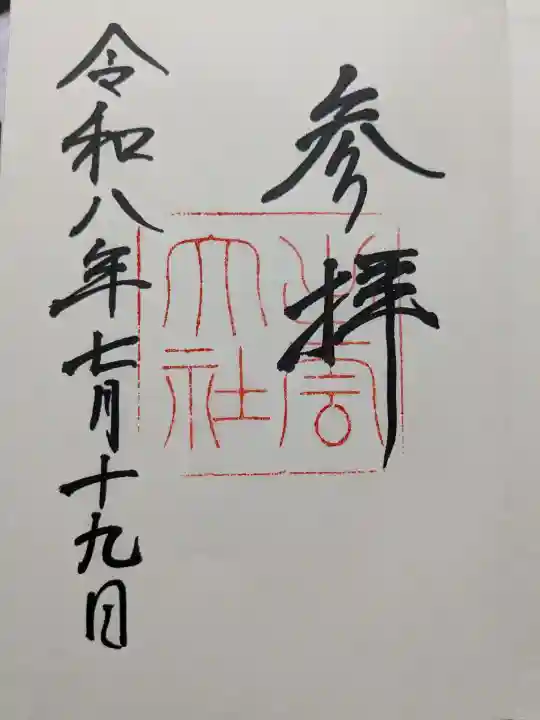 参拝
出雲
大社
令和八年七月十九日